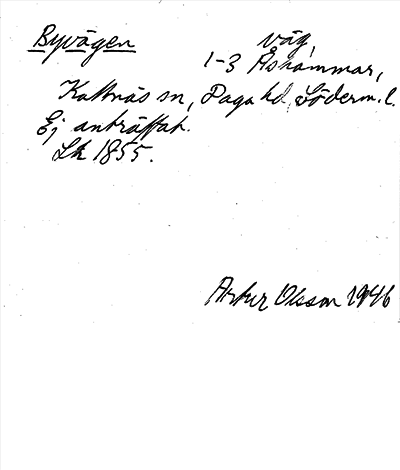 Byvägen väg,
1-3 Åshammar,
Kattnäs sn, Daga hd, Söderm. l.
Ej anträffat.
Lk 1855.
Artur Olsson 1946